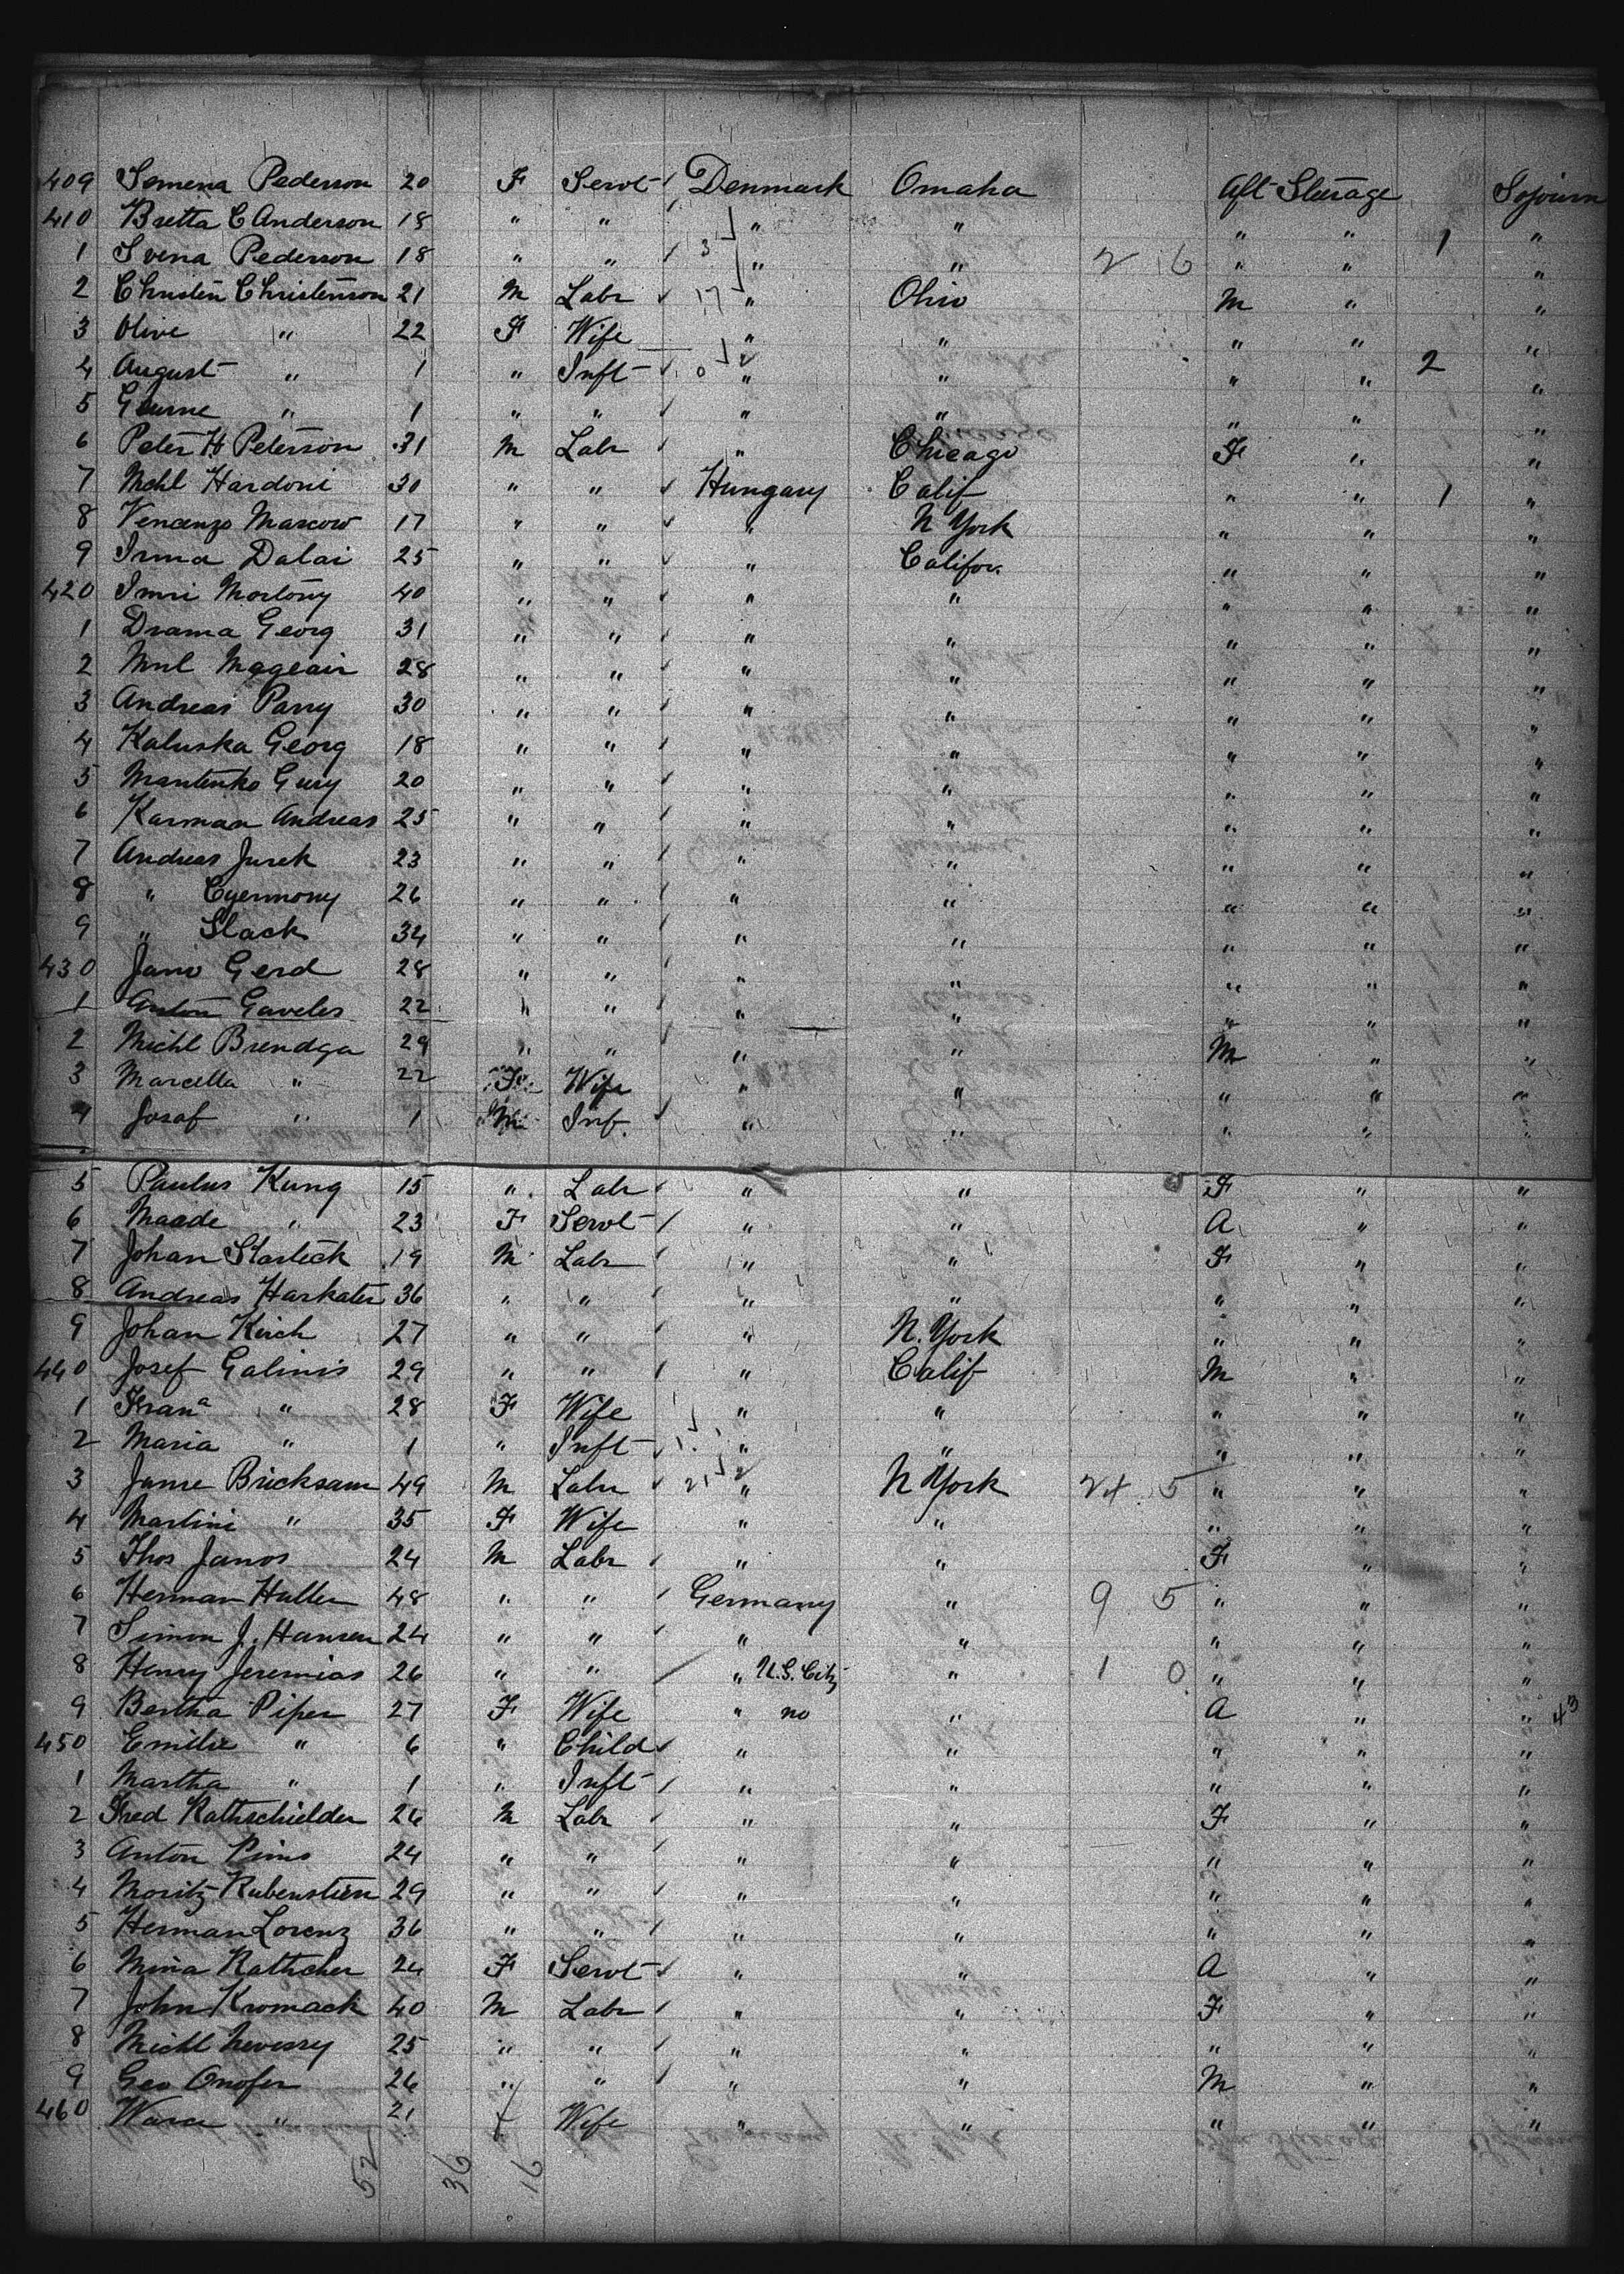 409 Semena Pederson 20 F Servt Denmark Omaha Aft Steerage Sojourn
410 Bretta C Anderson 18 " " " " " " 1 "
1 Svena Pederson 18 " " 3 " " 2 6 " " "
2 Christen Christenson 21 M Labr 17 " Ohio M " "
3 Olive " 22 F Wife " " " " "
4 August " 1 " Inft 0 " " " " 2 "
5 " 1 " " " " " " "
6 Peter H Peterson 31 M Labr " Chicago F " "
7 Mchl Hardoni 30 " " Hungary Calif " " 1 "
8 Vencenzo Marcow 17 " " " N York " " "
9 Irma Dalai 25 " " " Califor. " " "
420 Imri Mortony 40 " " " " " " "
1 Drama Georg 31 " " " " " " "
2 Mageair 28 " " " " " " "
3 Andreas Parry 30 " " " " " " "
4 Kaluska Georg 18 " " " " " " "
5 Mantenko Gury 20 " " " " " " "
6 Karman Andreas 25 " " " " " " "
7 Andreas Jurek 23 " " " " " " "
8 " Cyermony 26 " " " " " " "
9 " Slack 34 " " " " " " "
430 Jano Gerd 28 " " " " " " "
1 Anton Gaveles 22 " " " " " " "
2 Michl Brendga 29 " " " " M " "
3 Marcella " 22 F Wife " " " " "
4 Josaf " 1 M Inf. " " " " "
5 Paulus Kung 15 " Labr " " F " "
6 Maade " 23 F Servt " " A " "
7 Johan Starteck 19 M Labr " " F " "
8 Andreas Harkater 36 " " " " " " "
9 Johan Kirch 27 " " " N. York " " "
440 Josef Galinis 29 " " " Calif M " "
1 Frana " 28 F Wife " " " " "
2 Maria " 1 " Inft 1 " " " " "
3 Janse Bricksam 49 M Labr 21 " N York 24 5 " " "
4 Martini " 35 F Wife " " " " "
5 Thos Janos 24 M Labr " " F " "
6 Herman Huller 48 " " Germany " 9 5 " " "
7 Simon J. Hansen 24 " " " " " " "
8 Henry Jeremias 26 " " " U.S. Citz " 1 0 " " "
9 Bertha Piper 27 F Wife " no " A " " 43
450 Emilie " 6 " Child " " " " "
1 Martha " 1 " Inft " " " " "
2 Fred Rathschielder 26 M Labr " " F " "
3 Anton Pims 24 " " " " " " "
4 Moritz Rubenstien 29 " " " " " " "
5 Herman Lorenz 36 " " " " " " "
6 Mina Rathcher 24 F Servt " " A " "
7 John Kromack 40 M Labr " " F " "
8 Michl Nevessy 25 " " " " " " "
9 Geo Onofer 26 " " " " M " "
460 " 21 f Wife " " " " "
52 36 16